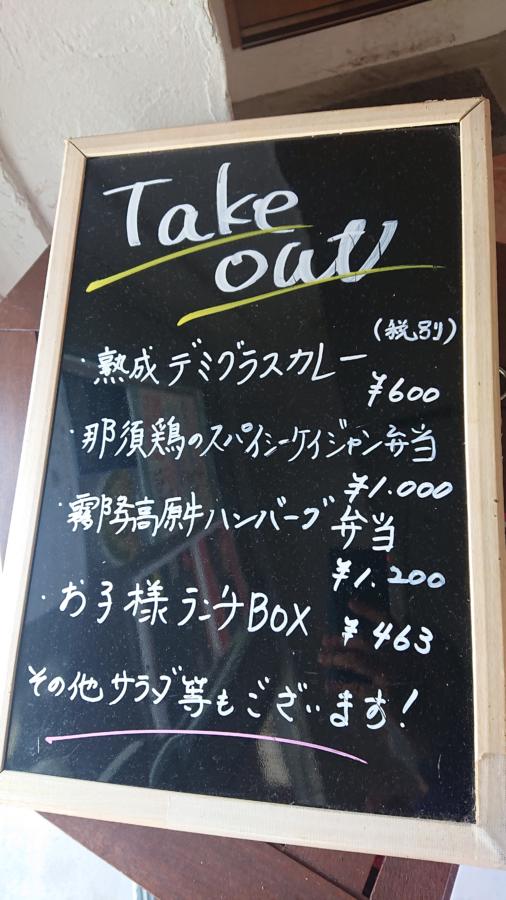 Take
out
(税別)
・熟成デミグラスカレー
¥600
・那須鶏のスパイシーケイジャン弁当
¥1.000
・霧降高原牛ハンバーグ弁当
¥1.200
・お子様ランチBOX ¥463
その他サラダ等もございます!